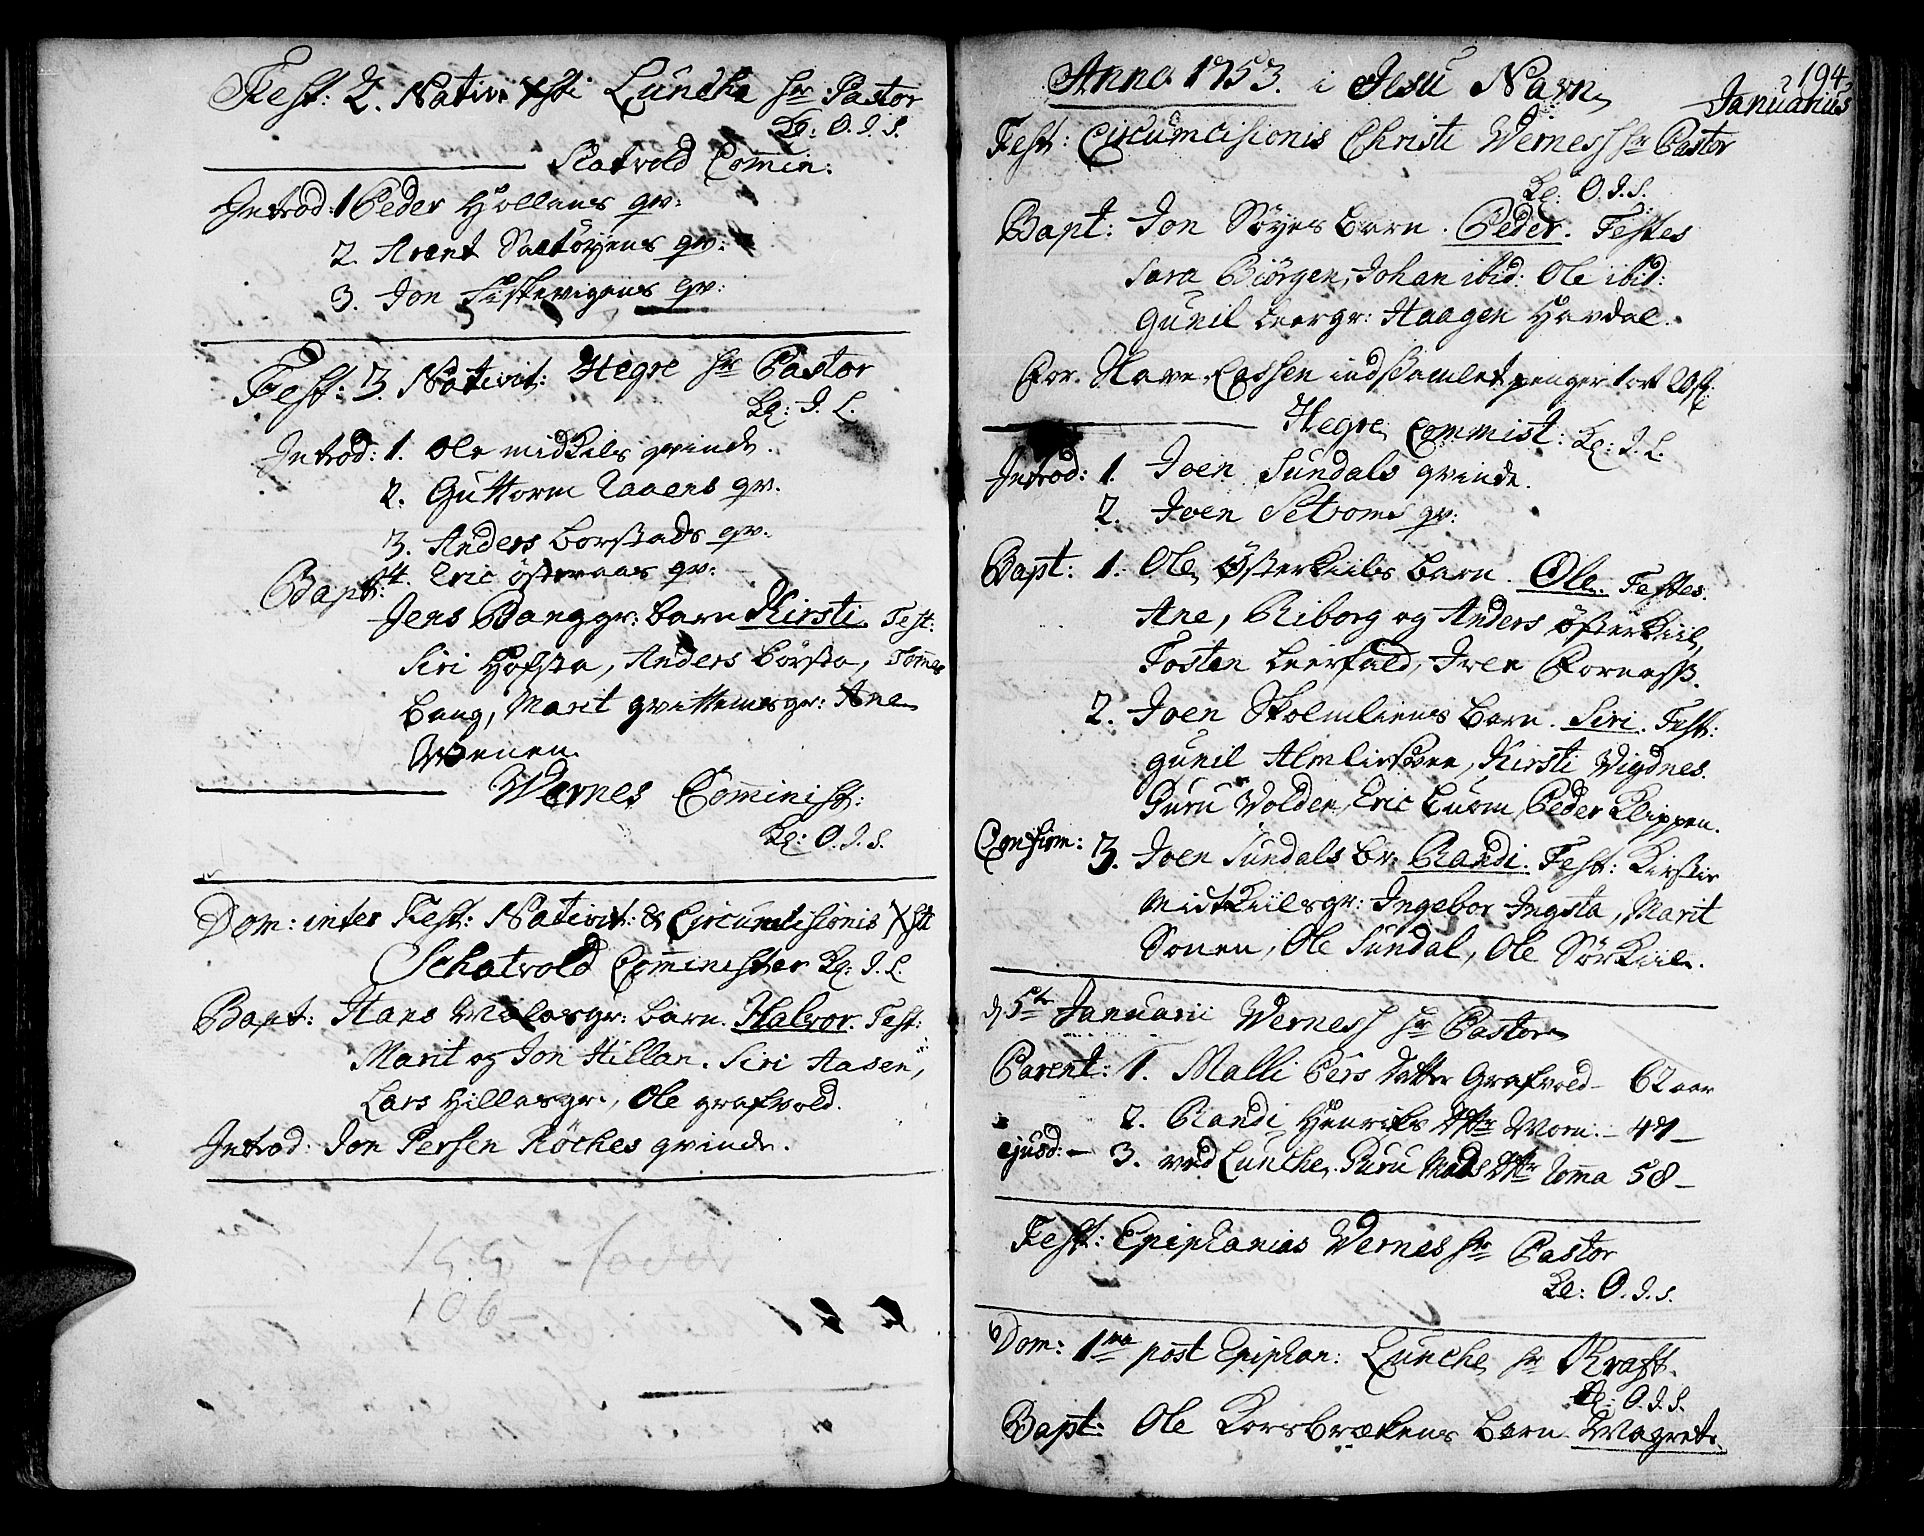 Fest: 2. Nativ: Xsti Luncke Hr Pastor
Kl: O.I.S.
Skatvold Commin:
Introd: 1 Peder Hollans qv:
2. Arent Saltöyens qv:
3. Jon Fiskevigens qv:
Fest: 3. Nativit: Hegre Hr Pastor
Kl: I. L.
Introd: 1. Ole midkils qvinde.
2. Guttorm Raaens qv.
3. Anders Borstads qv.
4. Eric österaas qv:
Bapt:
Jens Banggr: barn Kirsti. Fest:
Siri Hofsta, Anders Börsta, Tomes
bang, Marit qvittemsgr: Ane
Moenen.
Wernes Comminist:
Kl: O.I.S.
Dom: inter Fest: Nativit: & Circumcisionis Xsti
Schatvold Comminister Kl: I.L.
Bapt: Hans Wolasgr: barn. Halvor. Fest:
Marit og Jon Hillan. Siri Aasen,
Lars Hillasgr:, Ole grafvold.
Introd: Jon Persen Röckes qvinde.
106
Anno 1753. i Jesu Navn,
194
Januarius
Fest: Circumcisionis Christi Werness Hr Pastor
Kl: O.I.S.
Bapt: Jon Söyes barn. Peder. Festes
Sara Biörgen, Johan ibid: Ole ibid:
Gunil leergr: Haagen Havdal.
For Nave-Cassen indsamlet penger 1 ort 20 s.
Hegre, Commist: Kl: I.L.
Introd: 1. Joen Sundals qvinde.
2. Joen Setroms qv:
Bapt: 1. Ole, Österkiils barn. Ole. Festes:
Ane, Riborg og Anders österkiil,
Tosten leerfald, Iver Forness.
2. Joen Skolmliens barn. Siri. Fest:
gunil Almlirkven, Kirsti Vigdnes.
Guru Volden, Eric buum, Peder Klippen.
Confirm: 3. Joen Sundals br: Randi. Fest: Kirstie
Midtkiilsgr: Ingebor Ingsta, Marit
Sonen, Ole Sundal, Ole Sörkiil.
d 5te Januarii Werness Hr Pastor
Parent: 1. Malli Pers datter Grafvold – 62 aar
2. Randi Henriks dttr Morn – 47 –
ejusd: – 3. ved Luncke, Guru Mads dttr Roma 58 –
Fest: Epiphanias Wernes Hr Pastor
Kl: O.I.S.
Dom: 1ma post Epiphan: Luncke Hr Kraft.
Kl: O.I.S.
Bapt: Ole Korsbrækens barn. Magrete